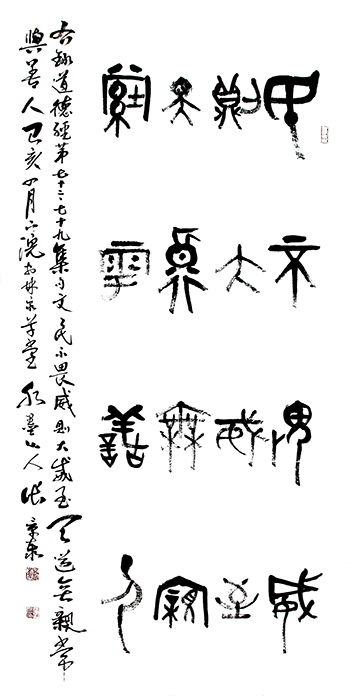 民不畏威
則大威至
天道無親
常與善人
右錄道德經第七十二七十九集句文民不畏威則大威至天道無親常
與善人己亥四月下浣於草堂山人張